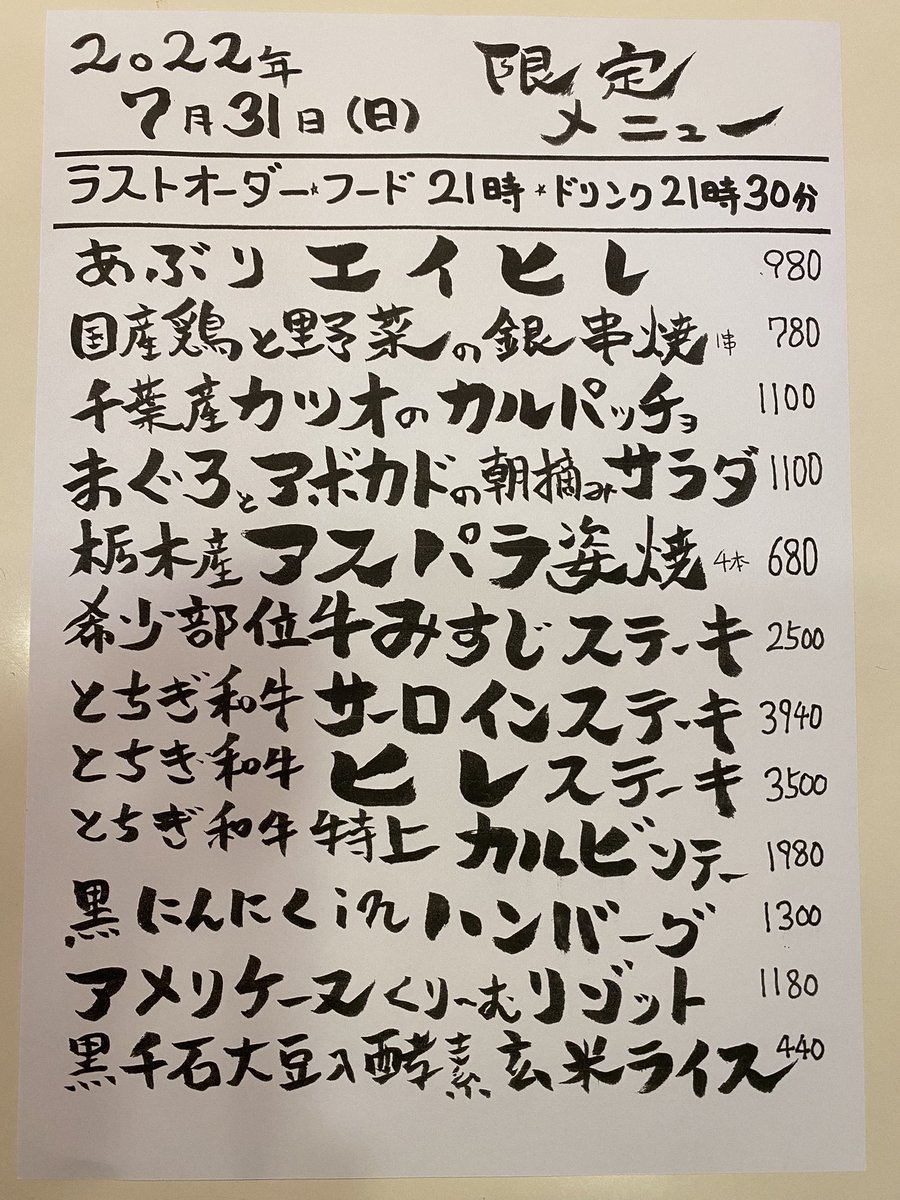 2022年 限定
7月31日(日) メニュー
ラストオーダー☆フード 21時☆ドリンク21時30分
あぶりエイヒレ 980
国産鶏と野菜の銀串焼 1串 780
千葉産カツオのカルパッチョ 1100
まぐろとアボカドの朝摘みサラダ 1100
栃木産アスパラ姿焼 4本 680
希少部位牛みすじステーキ 2500
とちぎ和牛サーロインステーキ 3940
とちぎ和牛ヒレステーキ 3500
とちぎ和牛特上カルビソテー 1980
黒にんにくinハンバーグ 1300
アメリケーヌくりーむリゾット 1180
黒千石大豆入酵素玄米ライス 440